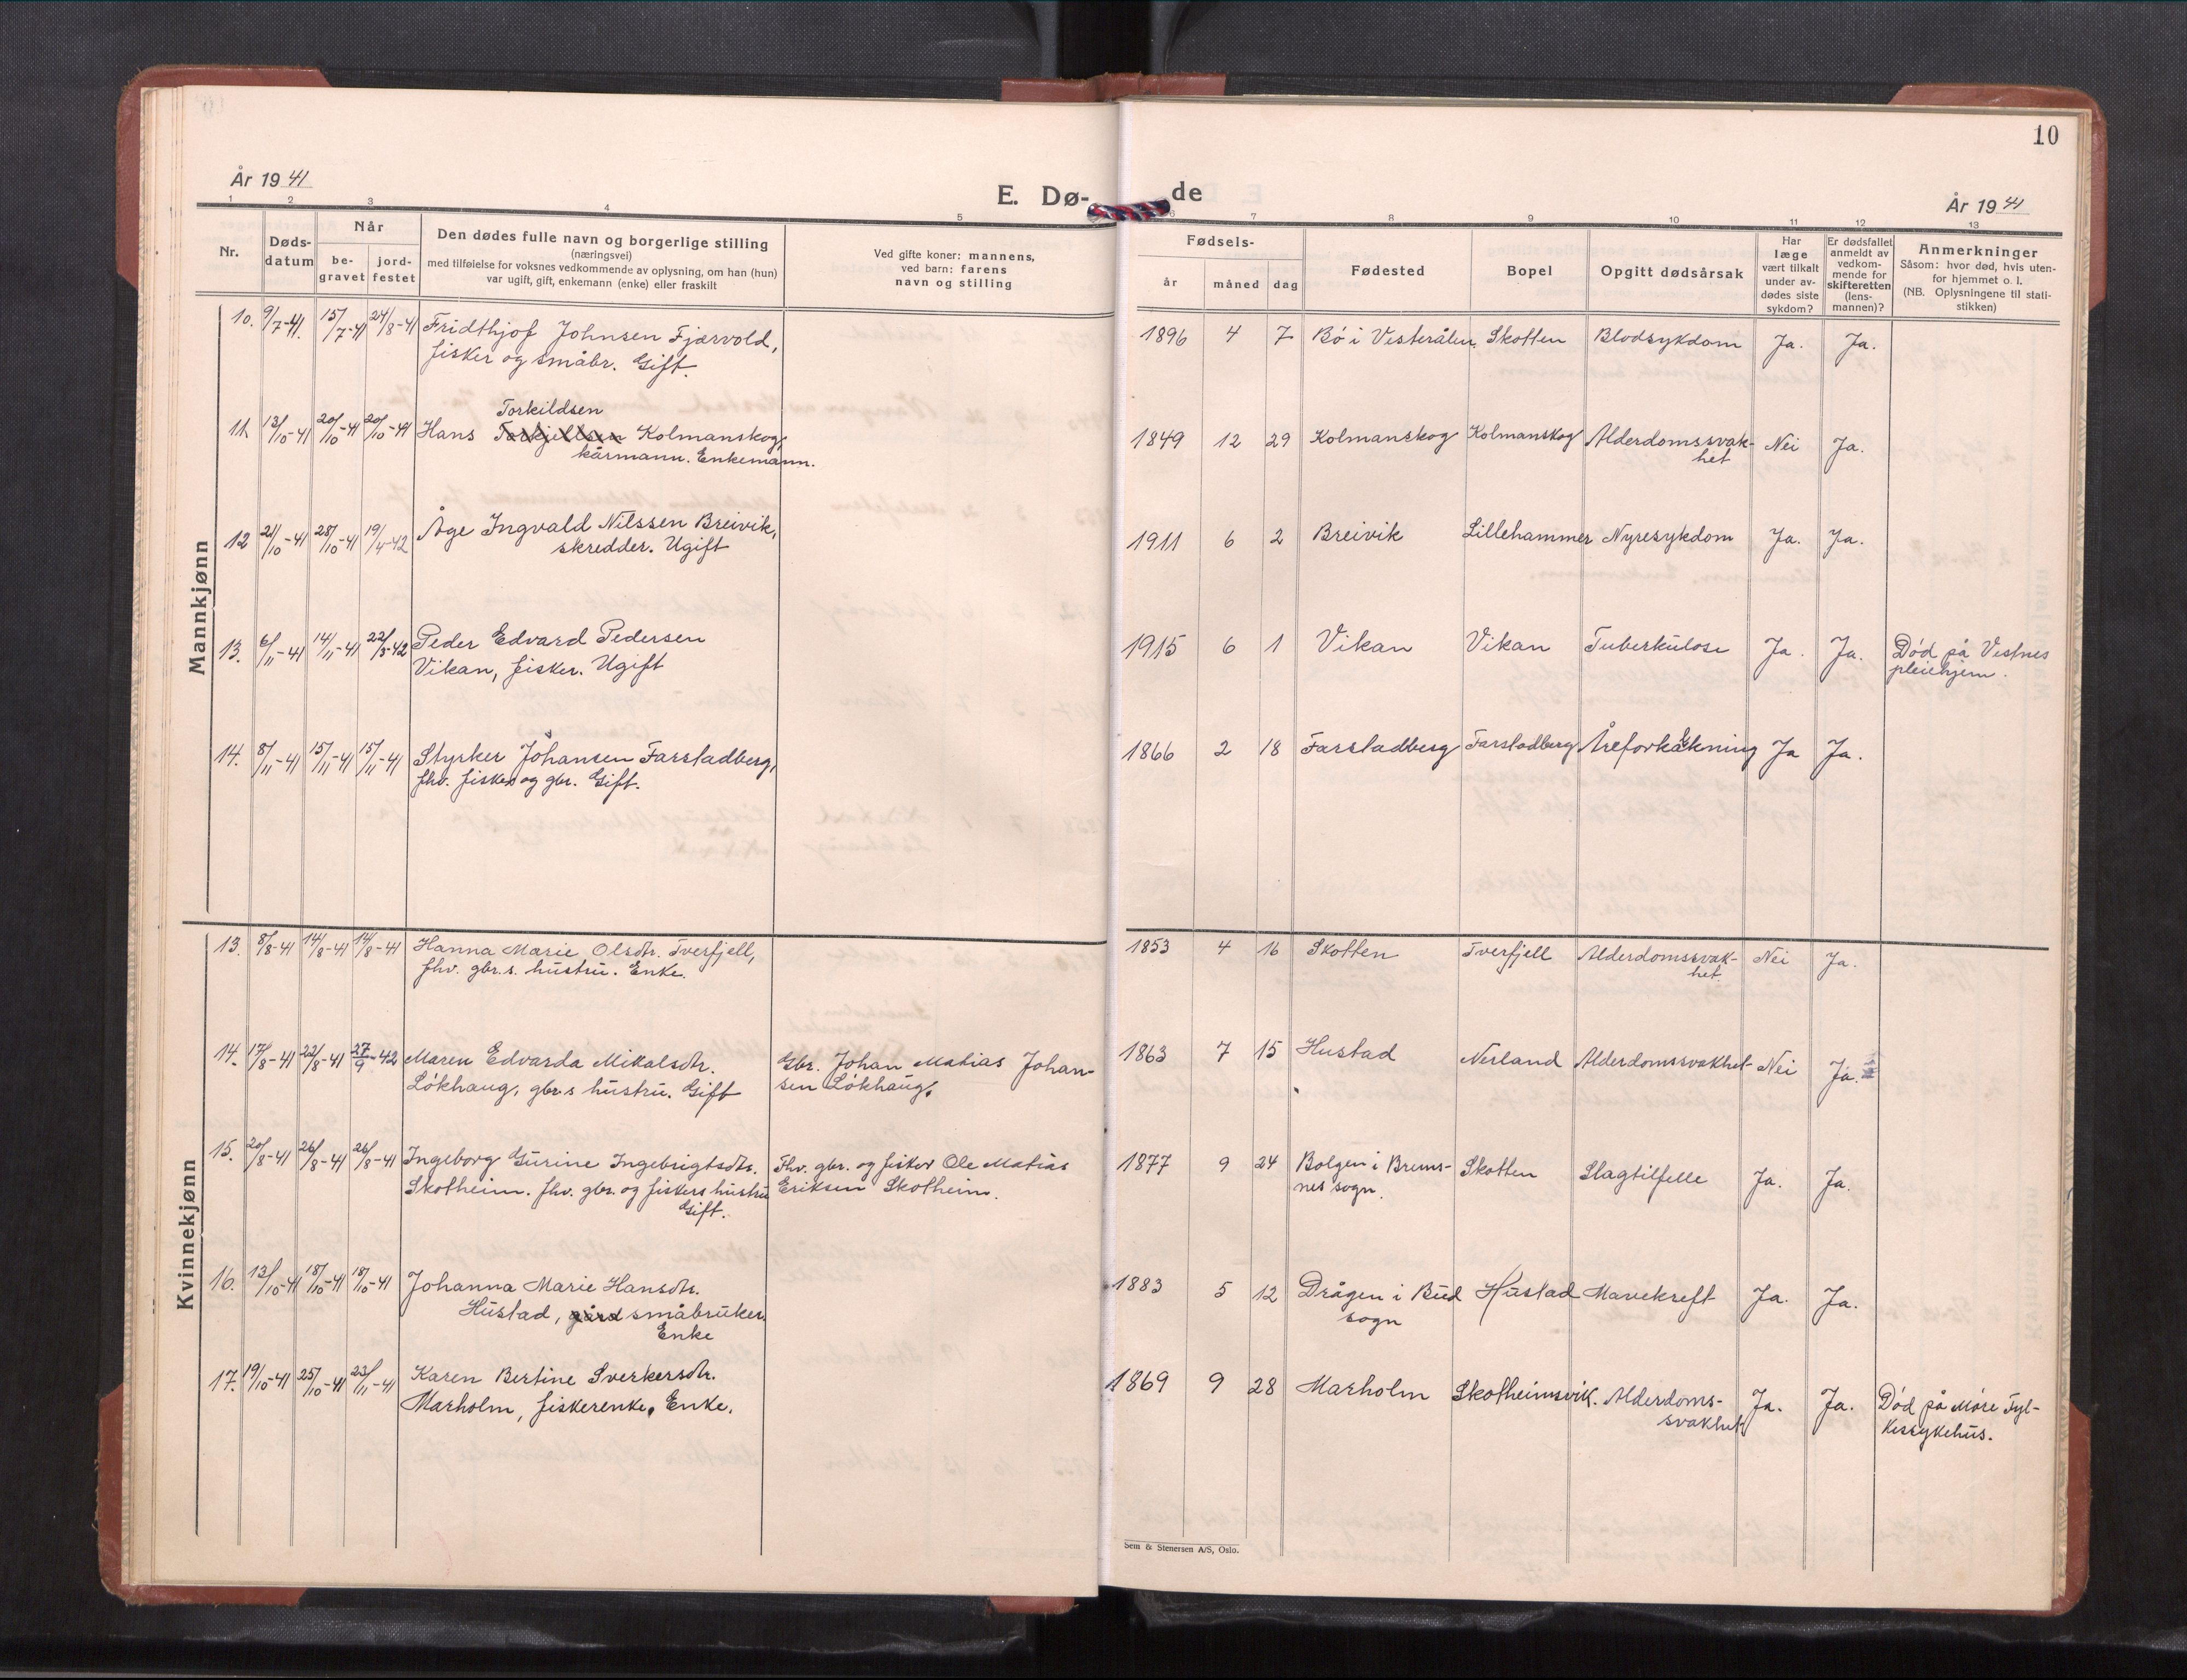 10
År 1941
E. Dø-
de
År 1941
1 2 3 4 5 6 7 8 9 10 11 12 13
Nr.
Døds-
datum
Når
be-
gravet
jord-
festet
Den dødes fulle navn og borgerlige stilling
(næringsvei)
med tilføielse for voksnes vedkommende av oplysning, om han (hun)
var ugift, gift, enkemann (enke) eller fraskilt
Ved gifte koner: mannens,
ved barn: farens
navn og stilling
Fødsels-
år måned dag
Fødested
Bopel
Opgitt dødsårsak
Har
læge
vært tilkalt
under av-
dødes siste
sykdom?
Er dødsfallet
anmeldt av
vedkom-
mende for
skifteretten
(lens-
mannen)?
Anmerkninger
Såsom: hvor død, hvis uten-
for hjemmet o. l.
(NB. Oplysningene til stati-
stikken)
Mannkjønn
10. 9/7-41. 15/7-41 24/8-41 Fridthjof Johnsen Fjærvold, 1896 4 7 Bø i Vesterålen. Skotten Blodsykdom Ja. Ja.
fisker og småbr. Gift.
Torkildsen
11. 13/10-41 20/10-41 20/10-41 Hans Torkjellsen Kolmanskog, 1849 12 29 Kolmanskog Kolmanskog Alderdomssvak- Nei Ja.
kårmann. Enkemann. het
12 21/10-41 28/10-41 19/4-42 Åge Ingvald Nilssen Breivik, 1911 6 2 Breivik Lillehammer Nyresykdom Ja. Ja.
skredder. Ugift
13. 6/11-41 14/11-41 22/3-42 Peder Edvard Pedersen 1915 6 1 Vikan Vikan Tuberkulose Ja. Ja. Død på Vestnes
Vikan, fisker. Ugift pleiehjem.
14. 8/11-41 15/11-41 15/11-41 Styrker Johansen Farstadberg, 1866 2 18 Farstadberg Farstadberg Åreforkalkning Ja Ja.
fhv. fisker og gbr. Gift.
Kvinnekjønn
13. 8/8-41 14/8-41 14/8-41 Hanna Marie Olsdtr. Tverfjell, 1853 4 16 Skotten Tverfjell Alderdomssvak- Nei Ja.
fhv. gbr.s. hustru. Enke. het.
14. 17/8-41 22/8-41 27/9-42 Maren Edvarda Mikalsdtr. Gbr. Johan Matias Johan- 1863 7 15 Hustad Nerland Alderdomssvakhet Nei Ja.
Løkhaug, gbr.s hustru. Gift sen Løkhaug.
15. 20/8-41 26/8-41 26/8-41 Ingeborg Gurine Ingebrigtsdtr. Fhv. gbr. og fisker Ole Matias 1877 9 24 Bolgen i Brems- Skotten Slagtilfelle Ja. Ja.
Skotheim. fhv. gbr. og fiskers hustru Eriksen Skotheim. nes sogn.
Gift.
16. 13/10-41 18/10-41 18/10-41 Johanna Marie Hansdtr. 1883 5 12 Drågen i Bud Hustad Mavekreft Ja. Ja.
Hustad, gård småbruker. sogn
Enke
17. 19/10-41 25/10-41 23/11-41 Karen Bertine Sverkersdtr. 1869 9 28 Marholm Skotheimsvik. Alderdoms- Ja. Ja. Død på Møre Fyl-
Marholm, fiskerenke. Enke. svakhet kessykehus.
Sem & Stenersen A/S, Oslo.